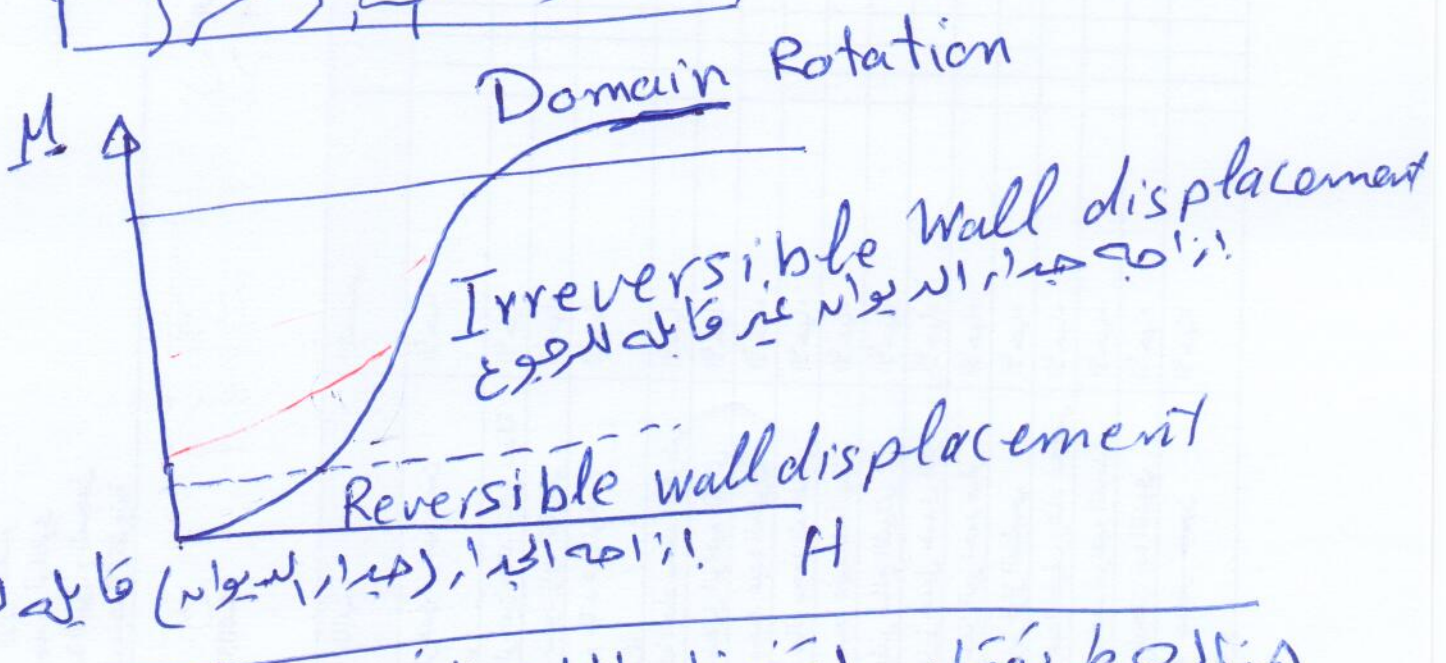 Domain Rotation
M
Irreversible Wall displacement
ازاحه جدار الديوان غير قابله للرجوع
Reversible wall displacement
ازاحه الجدار (جدار الديوان) قابله
H